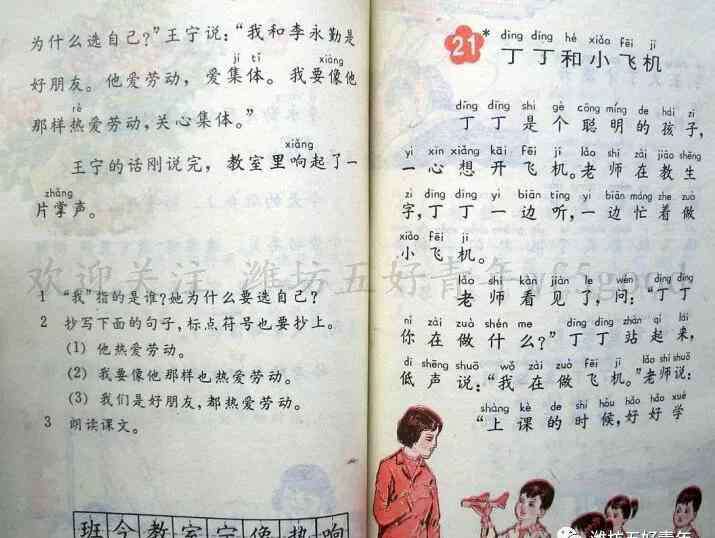 为什么选自己？”王宁说：“我和李永勤是
jí tǐ xiàng
好朋友。他爱劳动，爱集体。我要像他
rè
那样热爱劳动，关心集体。”
xiǎng
王宁的话刚说完，教室里响起了一
zhǎng
片掌声。
1 “我”指的是谁？她为什么要选自己？
2 抄写下面的句子，标点符号也要抄上。
(1) 他热爱劳动。
(2) 我要像他那样也热爱劳动。
(3) 我们是好朋友，都热爱劳动。
3 朗读课文。
班今教室宁像热响
dīng dīng hé xiǎo fēi jī
21* 丁丁和小飞机
dīng dīng shì gè cōng míng de hái zi
丁丁是个聪明的孩子，
yī xīn xiǎng kāi fēi jī lǎo shī zài jiāo shēng
一心想开飞机。老师在教生
zì dīng dīng yī biān tīng yī biān máng zhe zuò
字，丁丁一边听，一边忙着做
xiǎo fēi jī
小飞机。
lǎo shī kàn jiàn le wèn dīng dīng
老师看见了，问：“丁丁
nǐ zài zuò shén me dīng dīng zhàn qǐ lái
你在做什么？”丁丁站起来，
dī shēng shuō wǒ zài zuò fēi jī lǎo shī shuō
低声说：“我在做飞机。”老师说：
shàng kè de shí hòu hǎo hǎo xué
“上课的时候，好好学
欢迎关注 潍坊五好青年
潍坊五好青年